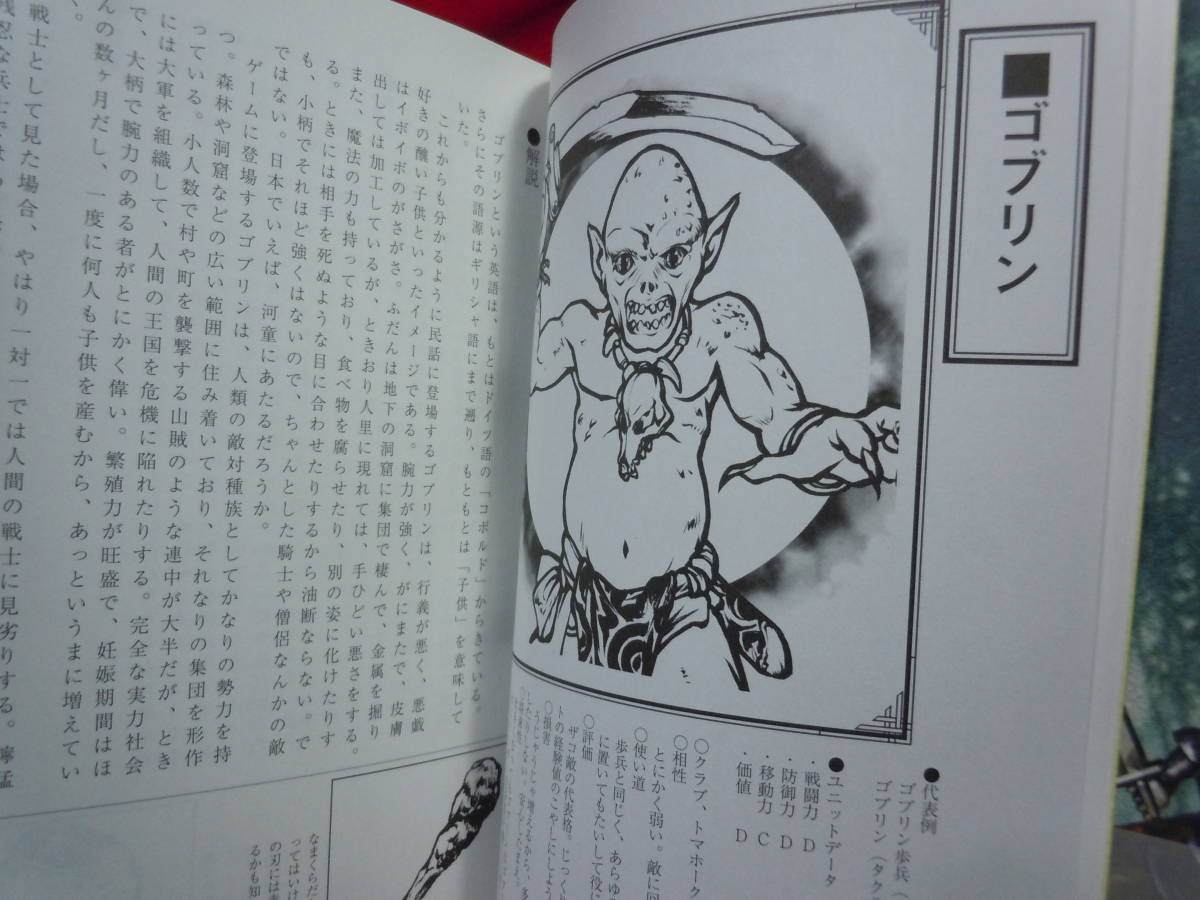 ■ゴブリン
●代表例
ゴブリン歩兵（
ゴブリン（タク
●ユニットデータ
・戦闘力 D
・防御力 D
・移動力 C
・価値 D
○クラブ、トマホーク
○相性
とにかく弱い。敵に回
○使い道
歩兵と同じく、あらゆ
に置いてもたいして役に
○評価
ザコ敵の代表格。じっくり
トの経験値のこやしにしよう
○損害
うじゃうじゃ増えるから、多
●解説
ゴブリンという英語は、もとはドイツ語の「コボルド」からきている。
さらにその語源はギリシャ語にまで遡り、もともとは「子供」を意味して
いた。
これからも分かるように民話に登場するゴブリンは、行義が悪く、悪戯
好きの醜い子供といったイメージである。腕力が強く、がにまたで、皮膚
はイボイボのがさがさ。ふだんは地下の洞窟に集団で棲んで、金属を掘り
出しては加工しているが、ときおり人里に現れては、手ひどい悪さをする。
また、魔法の力も持っており、食べ物を腐らせたり、別の姿に化けたりす
る。ときには相手を死ぬような目に合わせたりするから油断ならない。で
も、小柄でそれほど強くはないので、ちゃんとした騎士や僧侶なんかの敵
ではない。日本でいえば、河童にあたるだろうか。
ゲームに登場するゴブリンは、人類の敵対種族としてかなりの勢力を持
つ。森林や洞窟などの広い範囲に住み着いており、それなりの集団を形作
っている。小人数で村や町を襲撃する山賊のような連中が大半だが、とき
には大軍を組織して、人間の王国を危機に陥れたりする。完全な実力社会
で、大柄で腕力のある者がとにかく偉い。繁殖力が旺盛で、妊娠期間はほ
んの数ヶ月だし、一度に何人も子供を産むから、あっというまに増えてい
く。
戦士として見た場合、やはり一対一では人間の戦士に見劣りする。寧猛
なまくらだ
ってはいけ
の刃には
るかも知